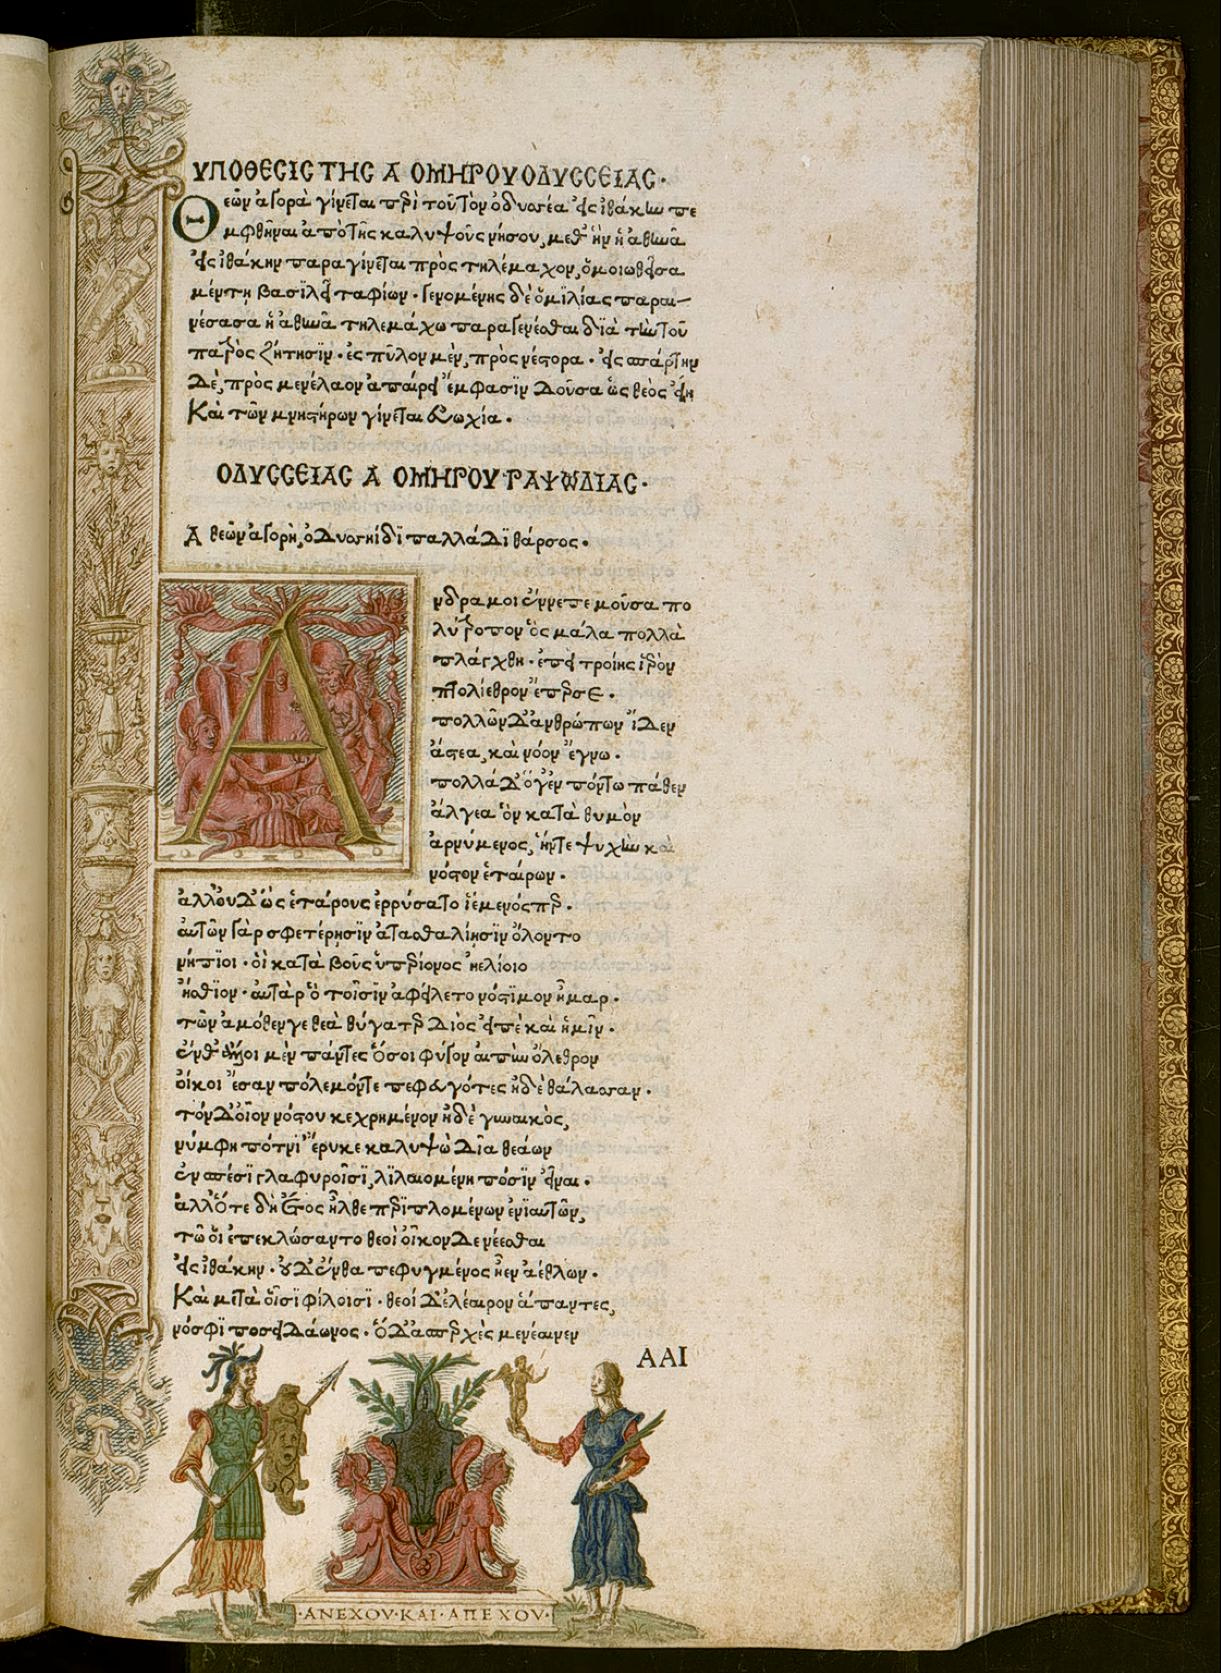 ΥΠΟΘΕϹΙϹ ΤΗϹ Α ΟΜΗΡΟΥ ΟΔΥϹϹΕΙΑϹ·
Θεῶν ἀγορὰ γίνεται περὶ τοῦ τὸν ὀδυσσέα εἰς ἰθάκην πε
μφθῆναι ἀπὸ τῆς καλυψοῦς νήσου, μεθ' ἣν ἡ ἀθηνᾶ
εἰς ἰθάκην παραγίνεται πρὸς τηλέμαχον, ὁμοιωθεῖσα
μέντῃ βασϊλεῖ ταφίων· γενομένης δὲ ὁμϊλίας παραι–
νέσασα ἡ ἀθηνᾶ τηλεμάχω παραγενέσθαι δϊὰ τὴν τοῦ
πατρὸς ζήτησϊν· ἐς πῦλον μὲν, πρὸς νέστορα· εἰς σπάρτην
δὲ, πρὸς μενέλαον ἀπαίρει ἔμφασϊν δοῦσα ὡς θεὸς εἴη
Καὶ τῶν μνηστήρων γίνεται εὐωχία·
ΟΔΥϹϹΕΙΑϹ Α ΟΜΗΡΟΥ ΡΑΨΩΔΙΑϹ·
Α θεῶν ἀγορὴ, ὀδυσσηΐδϊ παλλάδϊ θάρσος·
Ανδρα μοι ἔννεπε μοῦσα πο
λύτροπον ὃς μάλα πολλὰ
πλάγχθη· ἐπεὶ τροίης ἱερὸν
πτολίεθρον ἔπερσε·
πολλῶν δ' ἀνθρώπων ἴδεν
ἄστεα, καὶ νόον ἔγνω·
πολλὰ δ' ὅγ' ἐν πόντω πάθεν
ἄλγεα ὃν κατὰ θυμὸν
ἀρνύμενος, ἥντε ψυχὴν καὶ
νόστον ἑταίρων·
ἀλλ' οὐδ' ὣς ἑτάρους ἐρρύσατο ἱέμενός περ·
αὐτῶν γὰρ σφετέρησϊν ἀτασθαλίησϊν ὄλοντο
νήπϊοι· οἳ κατὰ βοῦς ὑπερίονος ἠελίοιο
ἤσθϊον· αὐτὰρ ὃ τοῖσϊν ἀφείλετο νόστϊμον ἦμαρ·
τῶν ἀμόθεν γε θεὰ θύγατερ διὸς εἰπὲ καὶ ἡμῖν·
ἔνθ' ἄλλοι μὲν πάντες ὅσοι φύγον αἰπὺν ὄλεθρον
οἴκοι ἔσαν πόλεμόντε πεφευγότες ἠδὲ θάλασσαν·
τόνδ' οἶον νόστου κεχρημένον ἠδὲ γυναικὸς,
νύμφη πότνϊ' ἔρυκε καλυψὼ δῖα θεάων
ἐν σπέσϊ γλαφυροῖσϊ, λϊλαιομένη πόσϊν εἶναι·
ἀλλ' ὅτε δὴ ἔτος ἦλθε περϊπλομένων ἐνϊαυτῶν,
τῶ οἱ ἐπεκλώσαντο θεοὶ οἶκον δε νέεσθαι
εἰς ἰθάκην· οὐδ' ἔνθα πεφυγμένος ἦεν ἀέθλων·
Καὶ μετὰ οἷσϊ φίλοισϊ· θεοὶ δ' ἐλέαιρον ἅπαντες,
νόσφϊ ποσειδάωνος· ὃ δ' ἀσπερχὲς μενέαινεν
ΑΑΙ
·ΑΝΕΧΟΥ·ΚΑΙ·ΑΠΕΧΟΥ·